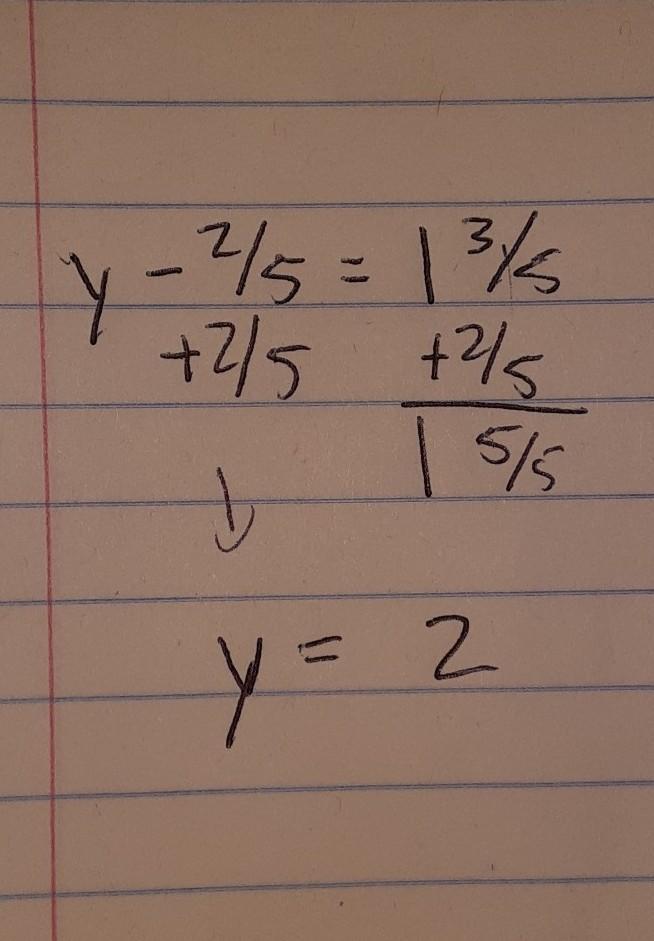 y - 2/5 = 1 3/5
+2/5 +2/5
1 5/5
↓
y = 2